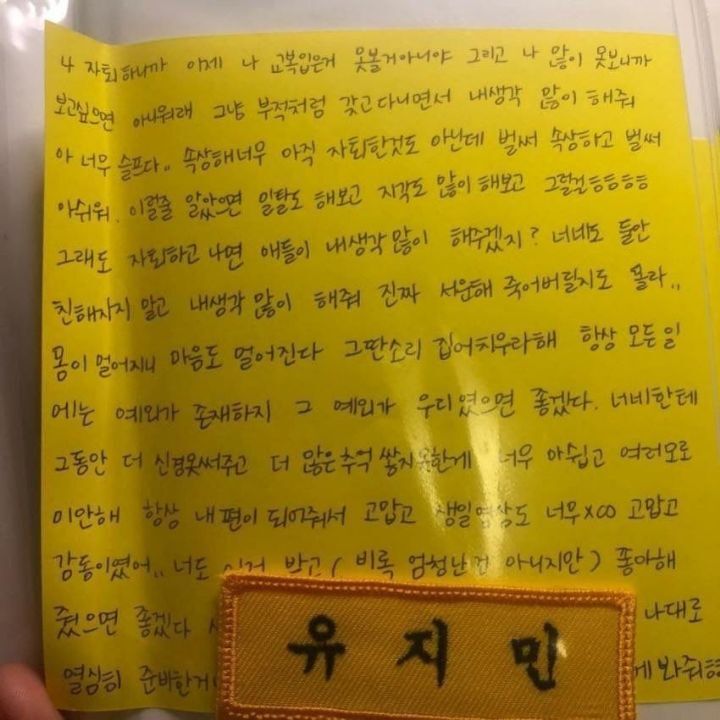 나 자퇴하니까 이제 나 교복입은거 못볼거아니야 그리고 나 많이 못보니까
보고싶으면 아니워래 그냥 부적처럼 갖고다니면서 내생각 많이 해줘
아 너무 슬프다.. 속상해너무 아직 자퇴한것도 아닌데 벌써 속상하고 벌써
아쉬워. 이럴줄 알았으면 일탈도 해보고 지각도 많이 해보고 그럴걸ㅎㅎㅎㅎ
그래도 자퇴하고 나면 애들이 내생각 많이 해주겠지? 너네도 둘만
친해지지 말고 내생각 많이 해줘 진짜 서운해 죽어버릴지도 몰라..
몸이 멀어지니 마음도 멀어진다 그딴소리 집어치우라해 항상 모든일
에는 예외가 존재하지 그 예외가 우리였으면 좋겠다. 너네한테
그동안 더 신경못써주고 더 많은추억 쌓지못한게 너무 아쉽고 여러모로
미안해 항상 내편이 되어줘서 고맙고 생일영상도 너무x00 고맙고
감동이였어.. 너도 이거 받고 ( 비록 엄청난건 아니지만 ) 좋아해
줬으면 좋겠다 나대로
열심히 준비한거 게 봐줘ㅎㅎ
유지민